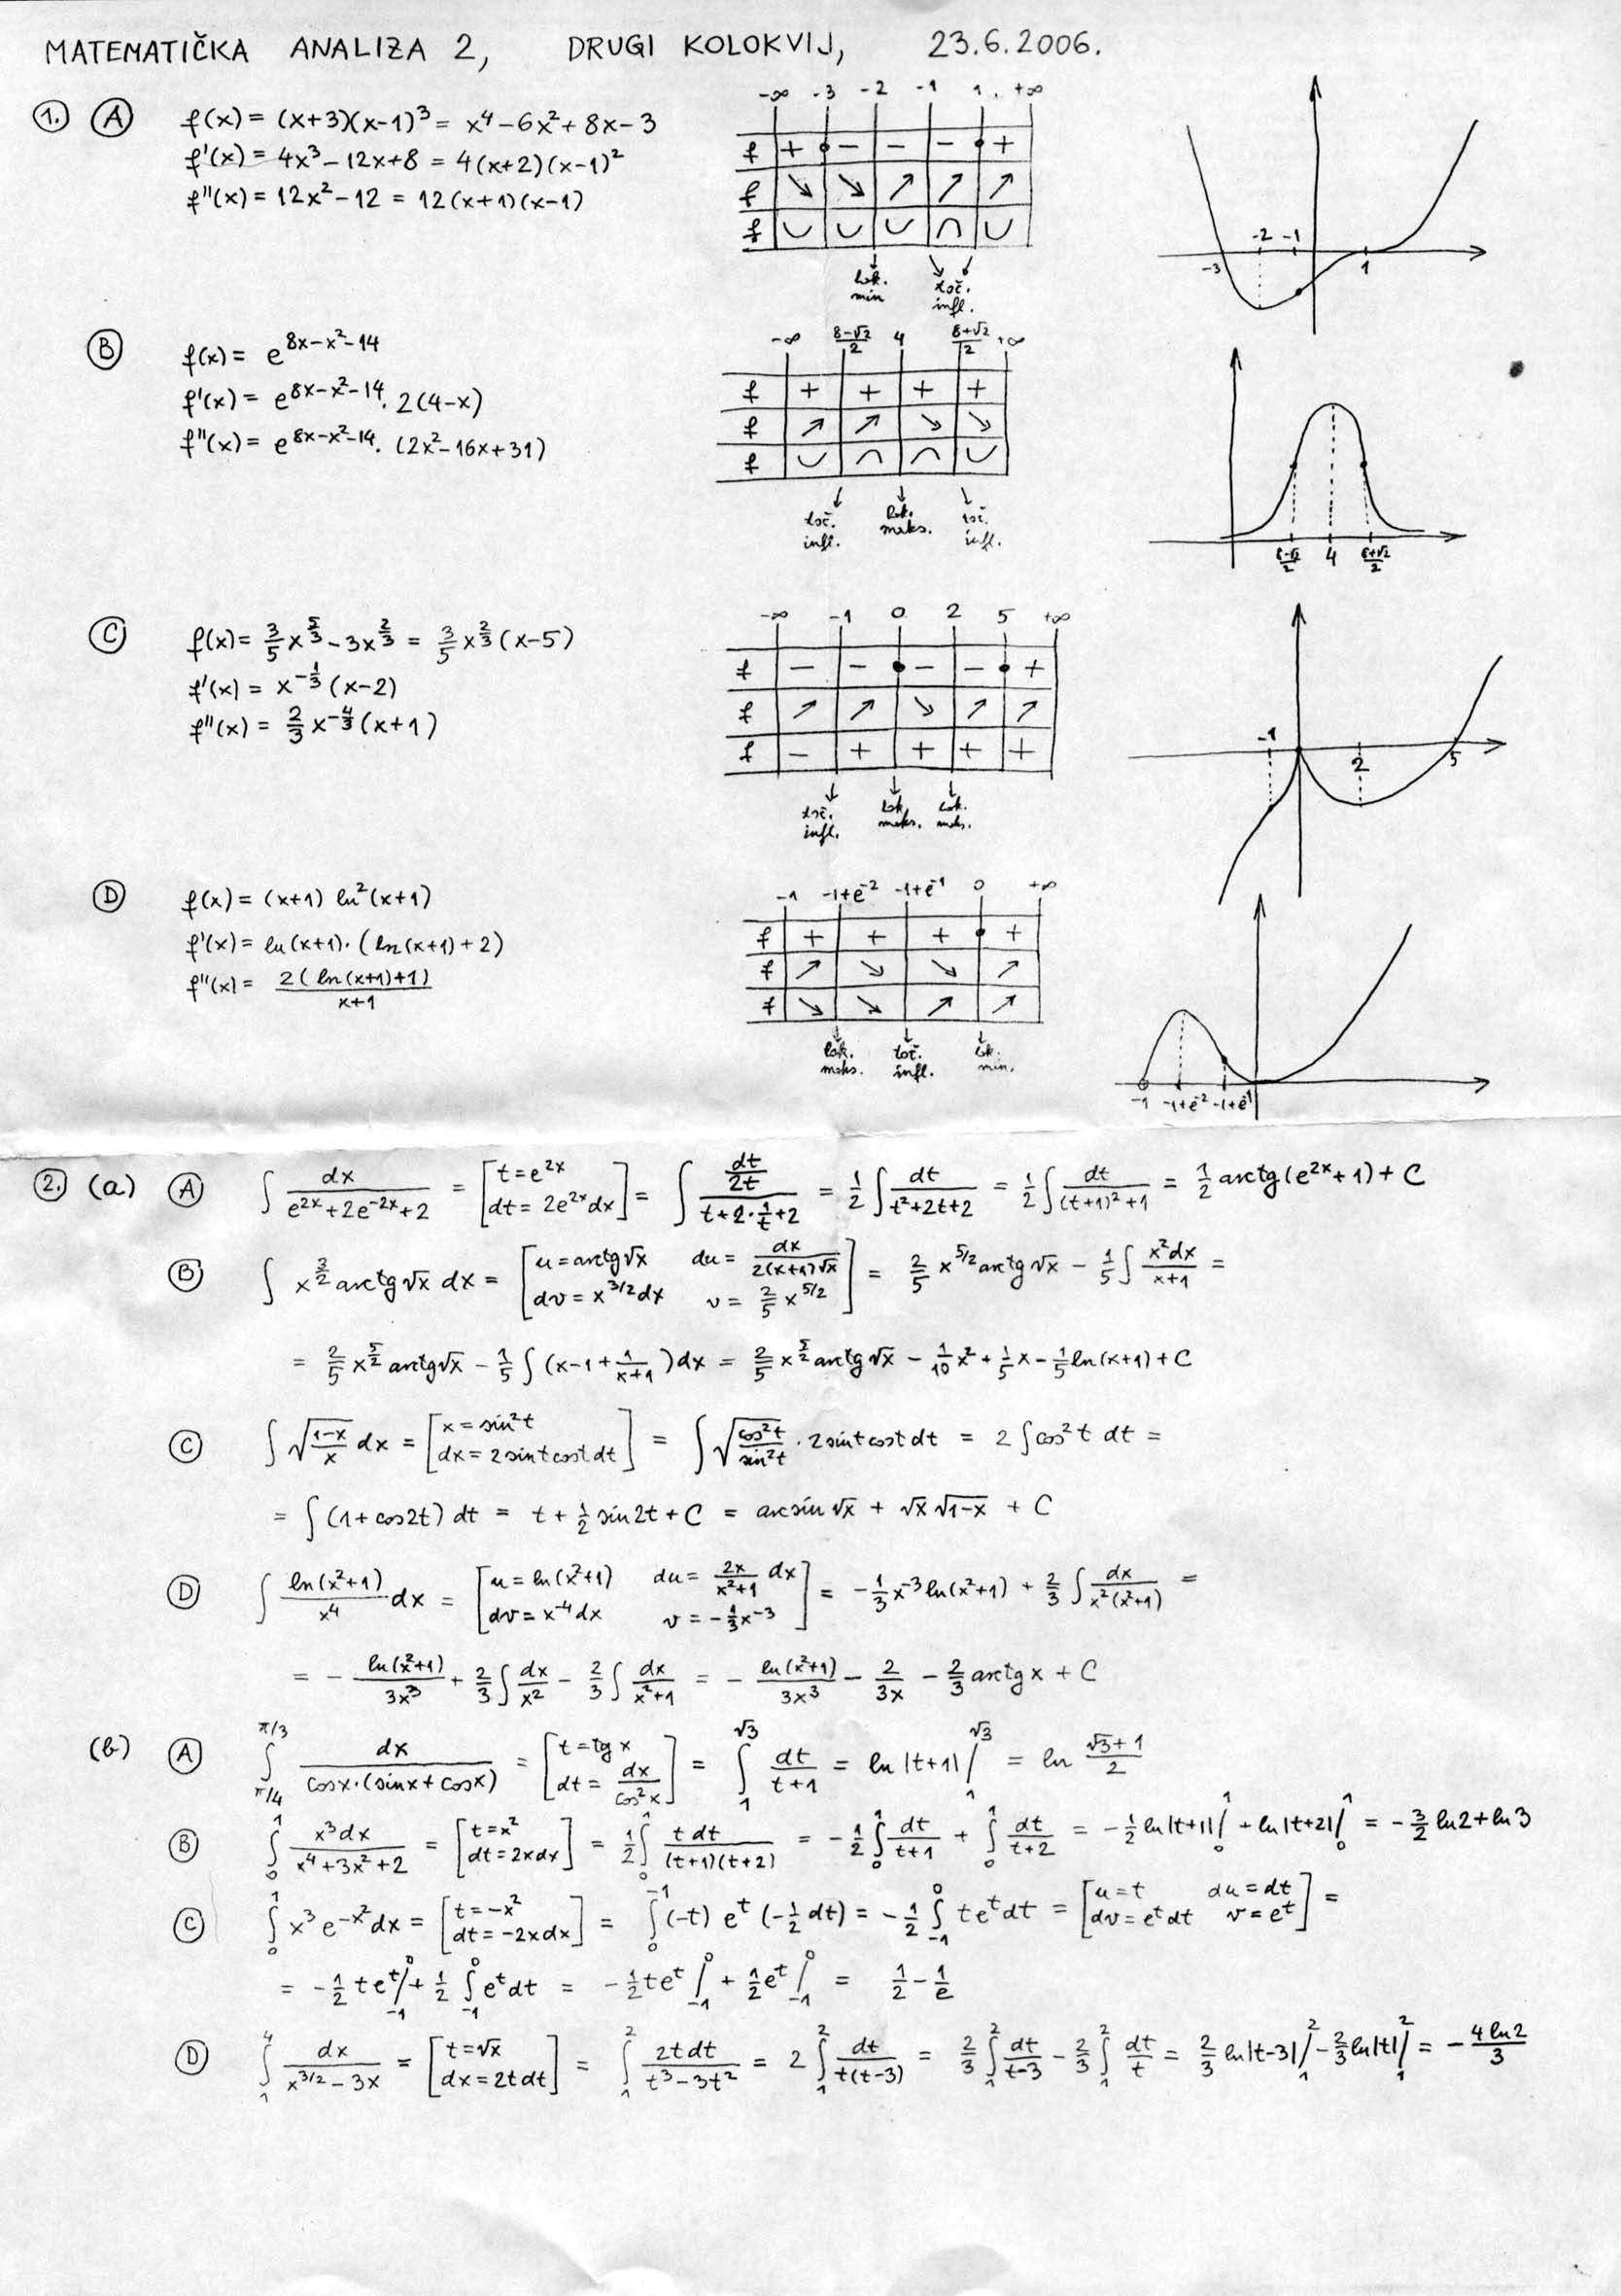 MATEMATIČKA ANALIZA 2, DRUGI KOLOKVIJ, 23.6.2006.
1. A f(x) = (x+3)(x-1)³ = x⁴-6x²+8x-3
f'(x) = 4x³-12x+8 = 4(x+2)(x-1)²
f''(x) = 12x²-12 = 12(x+1)(x-1)
-∞ -3 -2 -1 1 +∞
f + • - - - • +
f ↘ ↘ ↗ ↗ ↗
f ∪ ∪ ∪ ∩ ∪
↓ ↘ ↙
lok. min toč. infl.
-3 -2 -1 1
B f(x) = e^(8x-x²-14)
f'(x) = e^(8x-x²-14) · 2(4-x)
f''(x) = e^(8x-x²-14) · (2x²-16x+31)
-∞ (8-√2)/2 4 (8+√2)/2 +∞
f + + + +
f ↗ ↗ ↘ ↘
f ∪ ∩ ∩ ∪
toč. infl. lok. maks. toč. infl.
(8-√2)/2 4 (8+√2)/2
C f(x) = 3/5 x^(5/3) - 3x^(2/3) = 3/5 x^(2/3) (x-5)
f'(x) = x^(-1/3) (x-2)
f''(x) = 2/3 x^(-4/3) (x+1)
-∞ -1 0 2 5 +∞
f - - • - - • +
f ↗ ↗ ↘ ↗ ↗
f - + + + +
↓ ↓ ↓
toč. infl. lok. maks. lok.
-1 2 5
D f(x) = (x+1) ln²(x+1)
f'(x) = ln(x+1)·(ln(x+1)+2)
f''(x) = 2(ln(x+1)+1)/(x+1)
-1 -1+e⁻² -1+e⁻¹ 0 +∞
f + + + • +
f ↗ ↘ ↘ ↗
f ↘ ↘ ↗ ↗
lok. maks. toč. infl. lok. min.
-1 -1+e⁻² -1+e⁻¹
2. (a) A ∫ dx/(e^(2x)+2e^(-2x)+2) = [t=e^(2x) dt=2e^(2x)dx] = ∫ (dt/2t)/(t+2·1/t+2) = 1/2 ∫ dt/(t²+2t+2) = 1/2 ∫ dt/((t+1)²+1) = 1/2 arctg(e^(2x)+1) + C
B ∫ x^(3/2) arctg√x dx = [u=arctg√x du=dx/(2(x+1)√x) dv=x^(3/2)dx v=2/5 x^(5/2)] = 2/5 x^(5/2) arctg√x - 1/5 ∫ x²dx/(x+1) =
= 2/5 x^(5/2) arctg√x - 1/5 ∫ (x-1+1/(x+1))dx = 2/5 x^(5/2) arctg√x - 1/10 x² + 1/5 x - 1/5 ln(x+1) + C
C ∫ √((1-x)/x) dx = [x=sin²t dx=2sint cost dt] = ∫ √(cos²t/sin²t) · 2sint cost dt = 2 ∫ cos²t dt =
= ∫ (1+cos2t) dt = t + 1/2 sin2t + C = arcsin√x + √x √(1-x) + C
D ∫ ln(x²+1)/x⁴ dx = [u=ln(x²+1) du=2x/(x²+1) dx dv=x⁻⁴dx v=-1/3 x⁻³] = -1/3 x⁻³ ln(x²+1) + 2/3 ∫ dx/(x²(x²+1)) =
= - ln(x²+1)/(3x³) + 2/3 ∫ dx/x² - 2/3 ∫ dx/(x²+1) = - ln(x²+1)/(3x³) - 2/(3x) - 2/3 arctg x + C
(b) A ∫_(π/4)^(π/3) dx/(cosx·(sinx+cosx)) = [t=tg x dt=dx/cos²x] = ∫_1^(√3) dt/(t+1) = ln|t+1| |_1^(√3) = ln (√3+1)/2
B ∫_0^1 x³dx/(x⁴+3x²+2) = [t=x² dt=2xdx] = 1/2 ∫_0^1 t dt/((t+1)(t+2)) = -1/2 ∫_0^1 dt/(t+1) + ∫_0^1 dt/(t+2) = -1/2 ln|t+1| |_0^1 + ln|t+2| |_0^1 = -3/2 ln2 + ln3
C ∫_0^1 x³e^(-x²)dx = [t=-x² dt=-2xdx] = ∫_0^(-1) (-t) e^t (-1/2 dt) = -1/2 ∫_(-1)^0 t e^t dt = [u=t du=dt dv=e^t dt v=e^t] =
= -1/2 te^t |_(-1)^0 + 1/2 ∫_(-1)^0 e^t dt = -1/2 te^t |_(-1)^0 + 1/2 e^t |_(-1)^0 = 1/2 - 1/e
D ∫_1^4 dx/(x^(3/2)-3x) = [t=√x dx=2tdt] = ∫_1^2 2tdt/(t³-3t²) = 2 ∫_1^2 dt/(t(t-3)) = 2/3 ∫_1^2 dt/(t-3) - 2/3 ∫_1^2 dt/t = 2/3 ln|t-3| |_1^2 - 2/3 ln|t| |_1^2 = - 4ln2/3